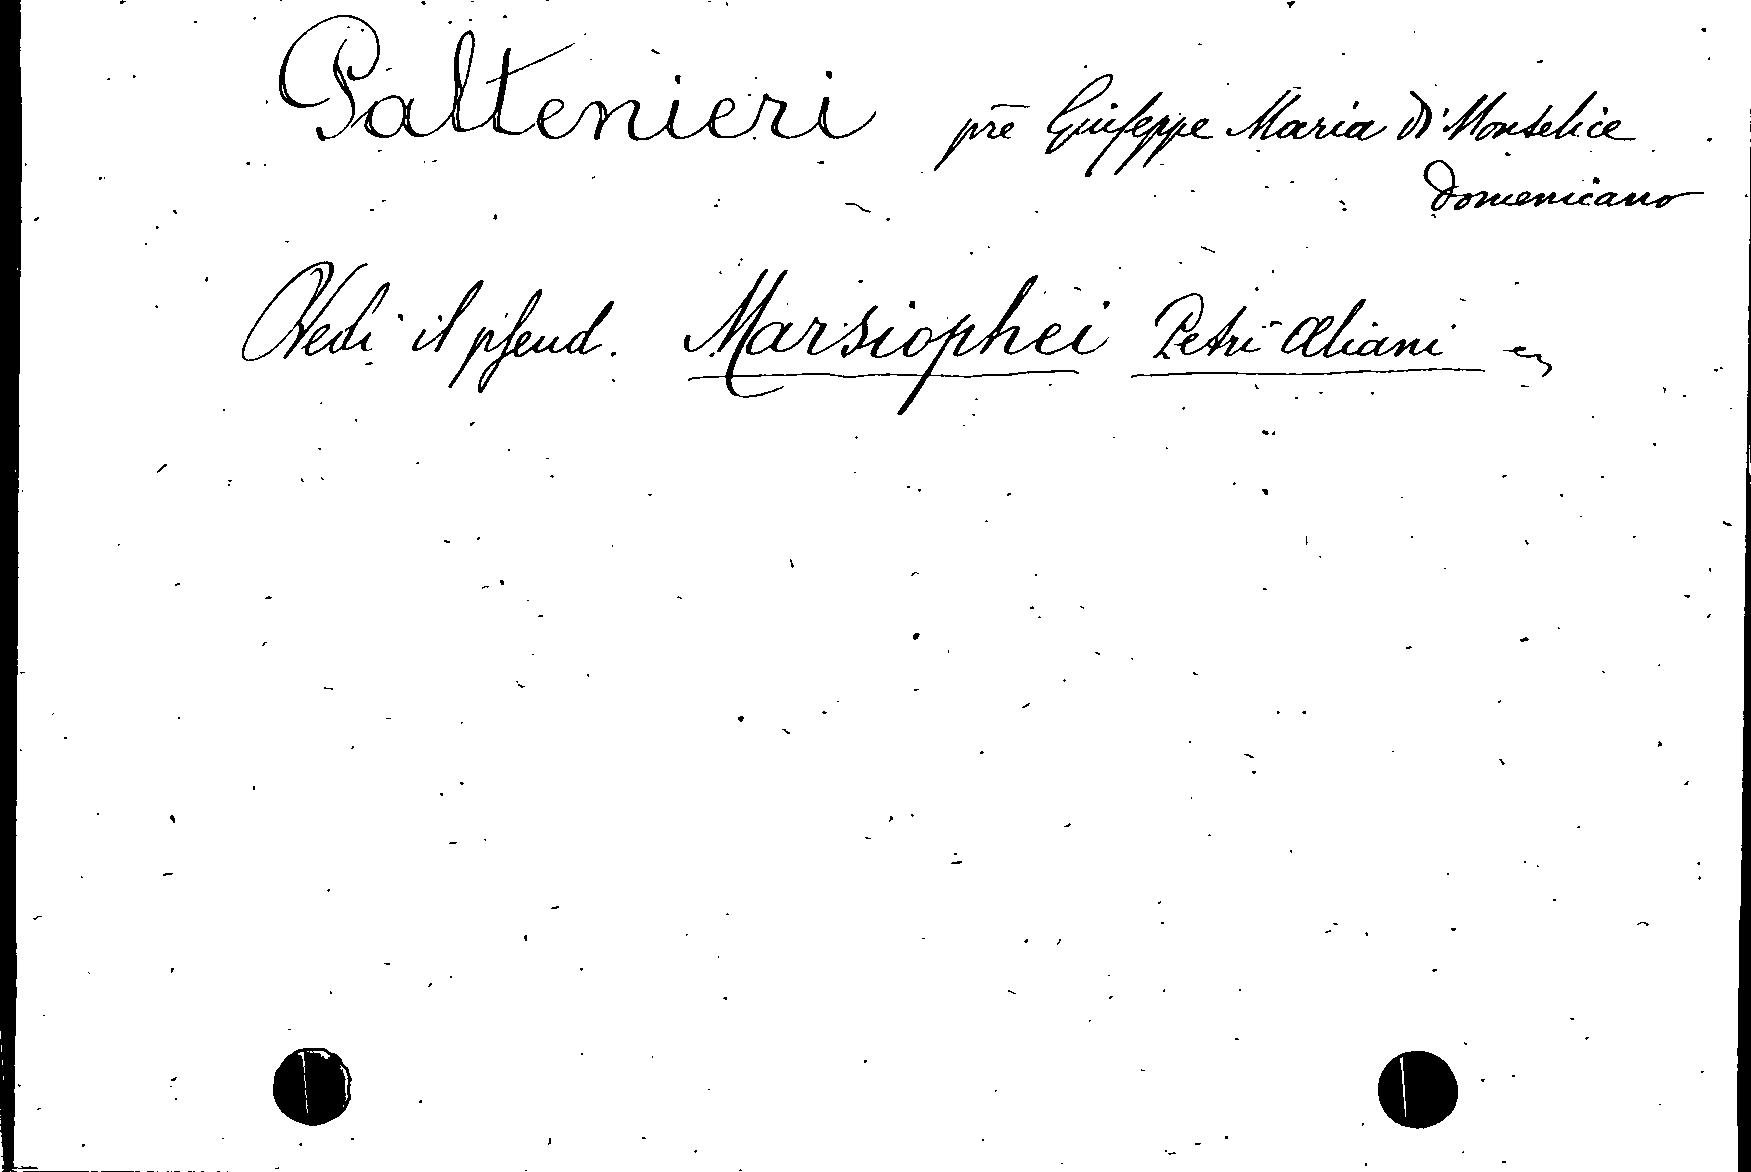 Paltenieri prē Giuseppe Maria di Monselice
Domenicano
Vedi il pseud. Marsiophei Petri Æliani